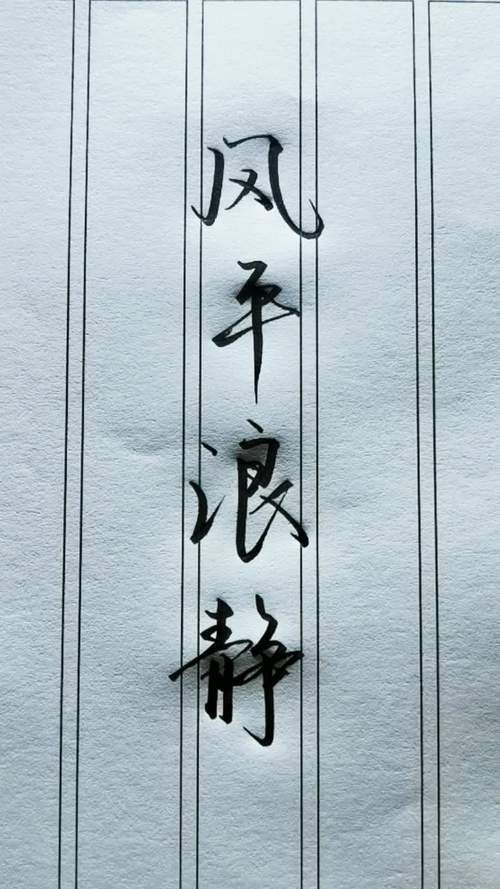 风平浪静